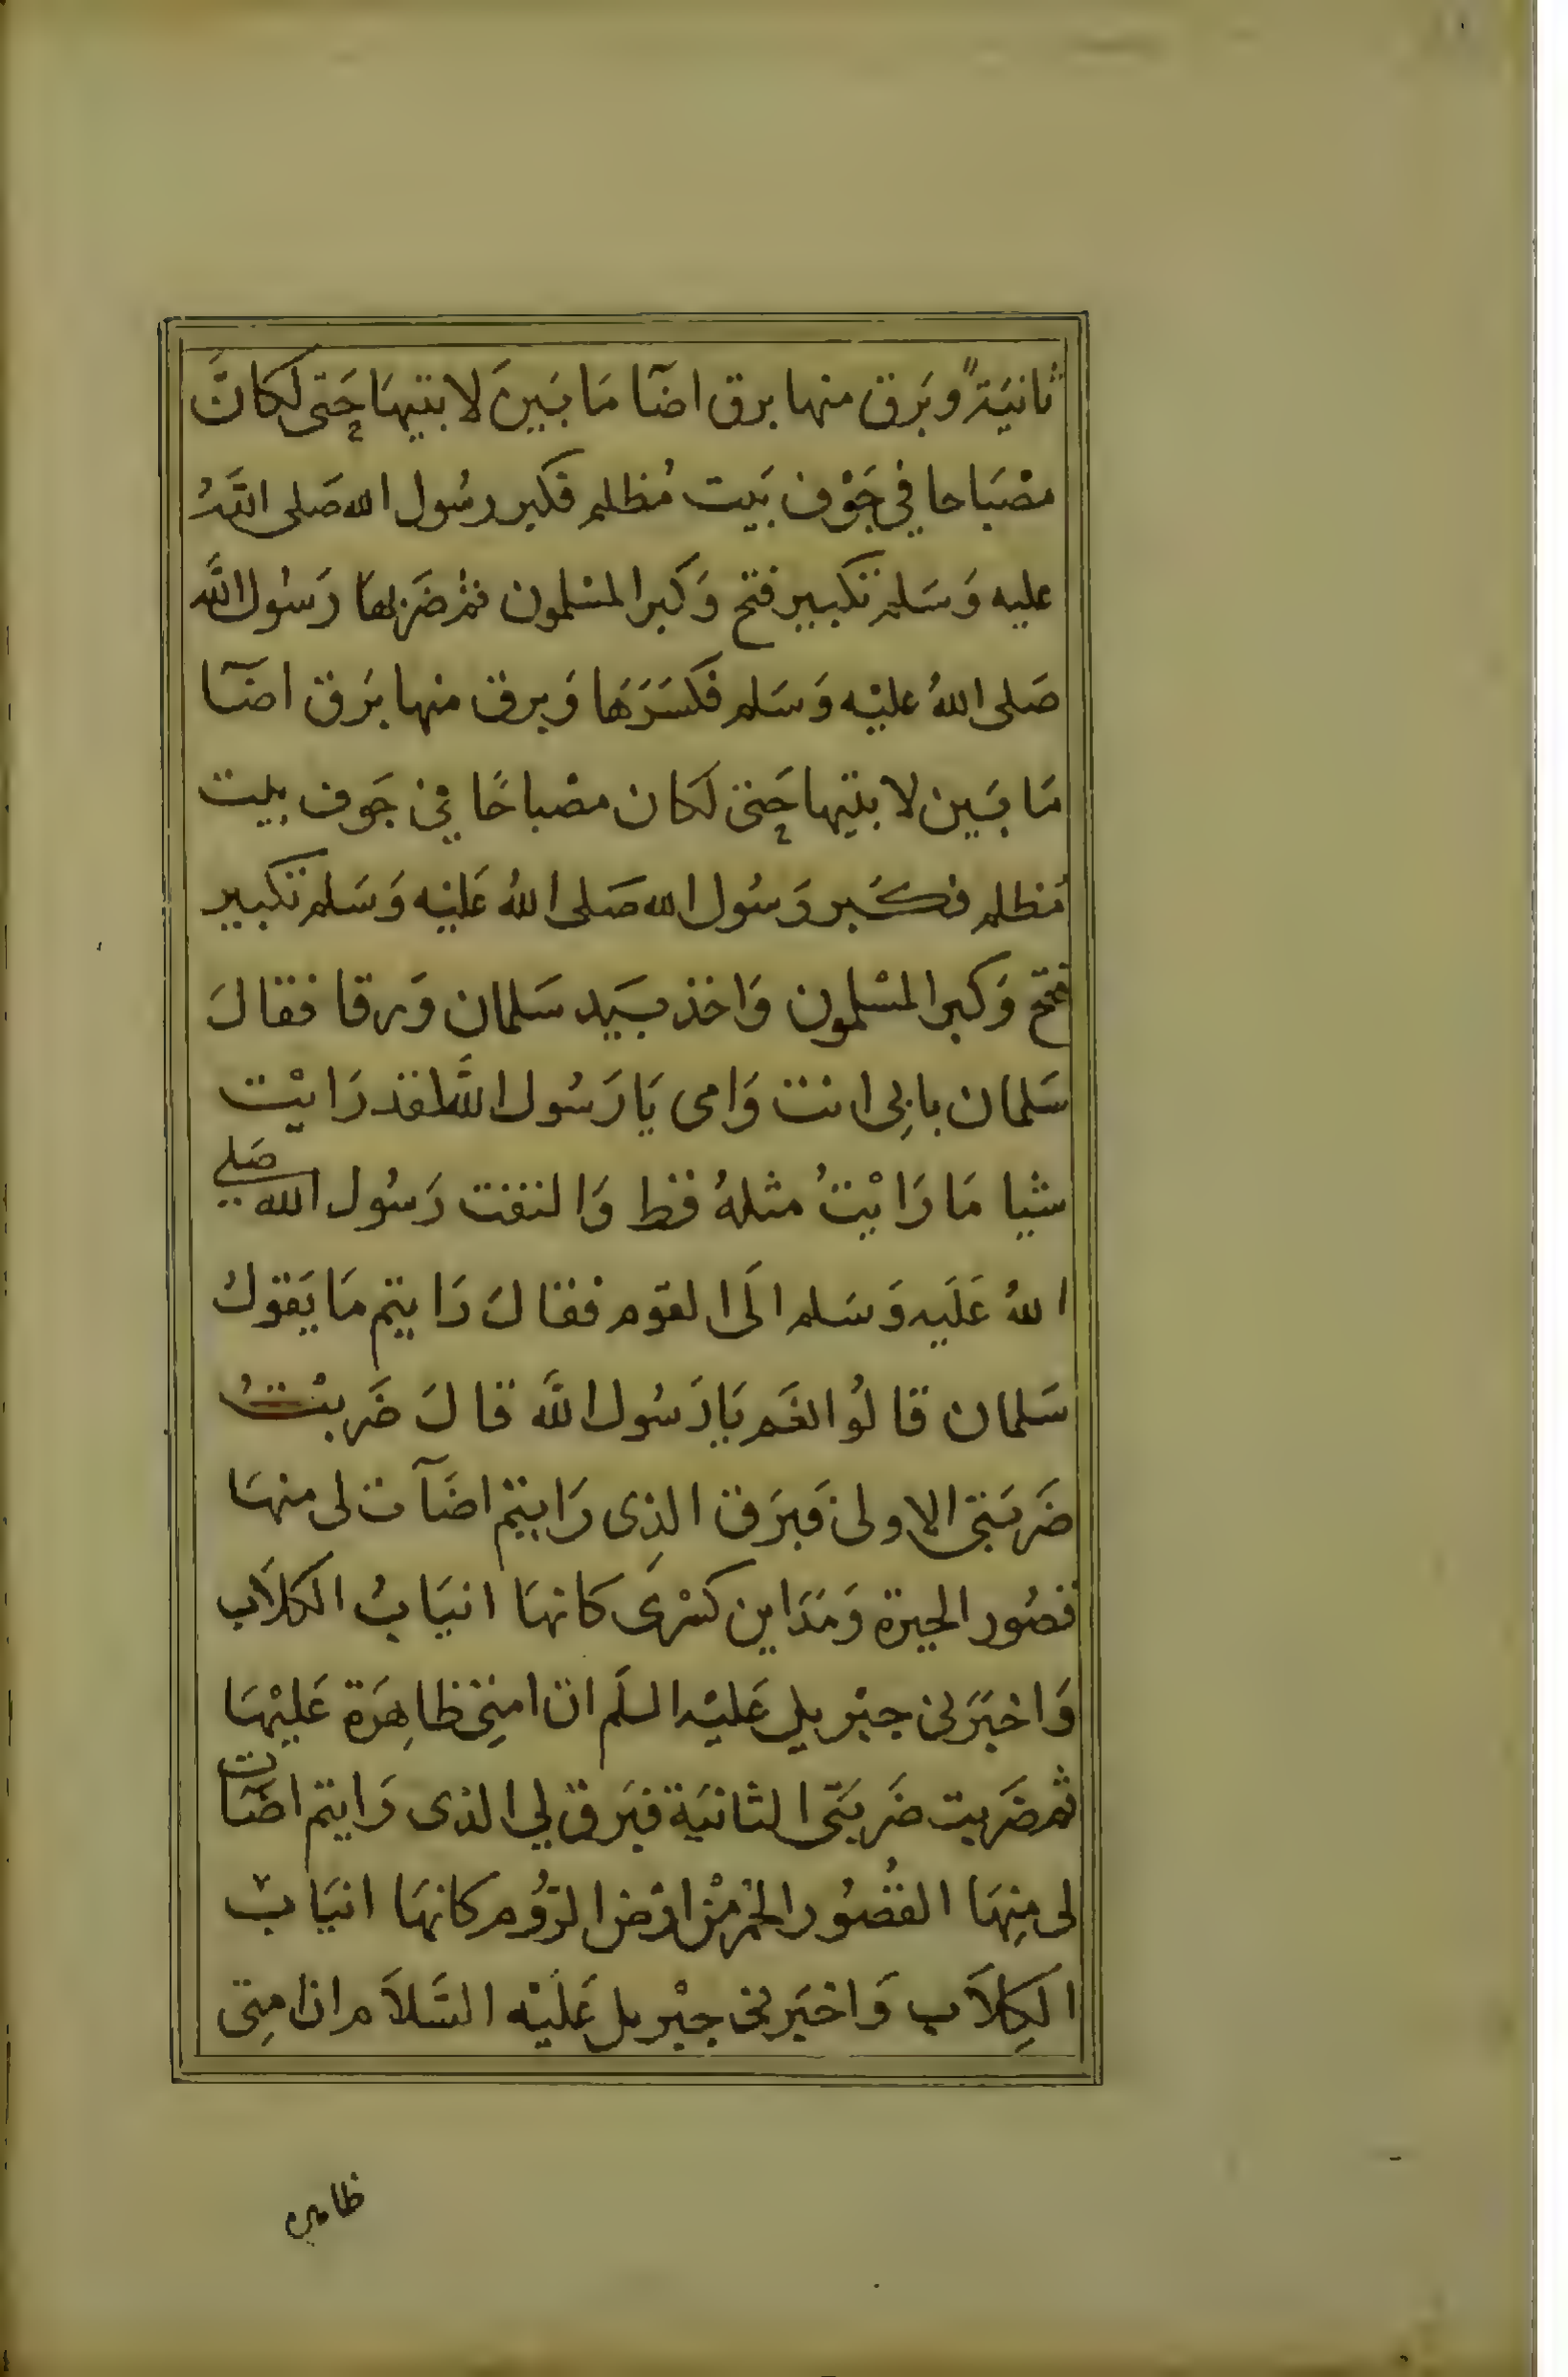 ثانيَةً وبَرق منها برق اضآ مَا بَينَ لابتيهَا حَتى لَكَانَّ
مصْبَاحا في جَوْف بَيت مُظلم فكبر رسُول الله صَلى اللهُ
عليه وَسَلم تكبير فتح وَكبر المسْلمون ثمْ ضَربهَا رَسُول اللَّه
صَلى اللهُ عليْه وَسَلم فكسَرَهَا وَبرق منها بَرق اضَآ
مَا بَين لابتيها حَتى لَكان مصْباحًا في جَوف بيت
مُظلم فكَبر رَسُول الله صَلى اللهُ عَليْه وَسَلم تكبير
فتح وَكبر المسْلمون وَاخذ بيَد سَلمان وَرقا فقالَ
سَلمان بابِي انت وَامى يَا رَسُول اللَّه لقد رَايْت
شيا مَا رَايْتُ مثلهُ قط وَالتفت رَسُول الله صَلى
اللهُ عَلَيه وَسَلم الَى القوم فقالَ رَايتم مَا يَقولُ
سَلمان قالُوا نعَم يَا رَسُول اللَّه قالَ ضَربْتُ
ضَربَتى الاولى فَبَرَق الذِى رَايتم اضَآت لى منهَا
قصُور الحيرة وَمَدَاين كسْرَى كانهَا انيَابُ الكلاَب
وَاخبَرَنى جبْريل عَليْه السلَم ان امتِى ظاهِرَة عَليْهَا
ثم ضَربت ضَربَتى الثانيَة فبَرق لي الذى رَايتم اضَآت
لى مِنهَا القُصُور الحُمْر مِنْ ارْض الرُّوم كانهَا انيَابُ
الكِلاَب وَاخبَرنى جبْريل عَليْه السَّلاَم ان امتِى
ظاهره